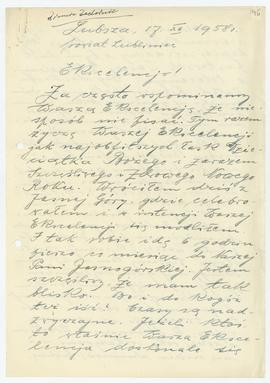 Lubsza, 17. XII 1958 r.
powiat Lubliniec
Ekscelencjo!
Za często wspominamy
Waszą Ekscelencję, że nie
sposób nie pisać. Tym razem
życzę Waszej Ekscelencji
jak najobfitszych łask Dzie-
ciątka Bożego i zarazem
Szczęśliwego i Zdrowego Nowego
Roku. Wróciłem dziś z
Jasnej Góry, gdzie celebro-
wałem i w intencji Waszej
Ekscelencji się modliłem
I tak robię idę 6 godzin
pieszo co miesiąc do Naszej
Pani Jasnogórskiej. Jestem
szczęśliwy, że mam tak
blisko. Bo i do kogóż
też iść! Czasy są nad-
zwyczajne. Jeżeli ktoś
to właśnie Wasza Eksce-
lencja doskonale się